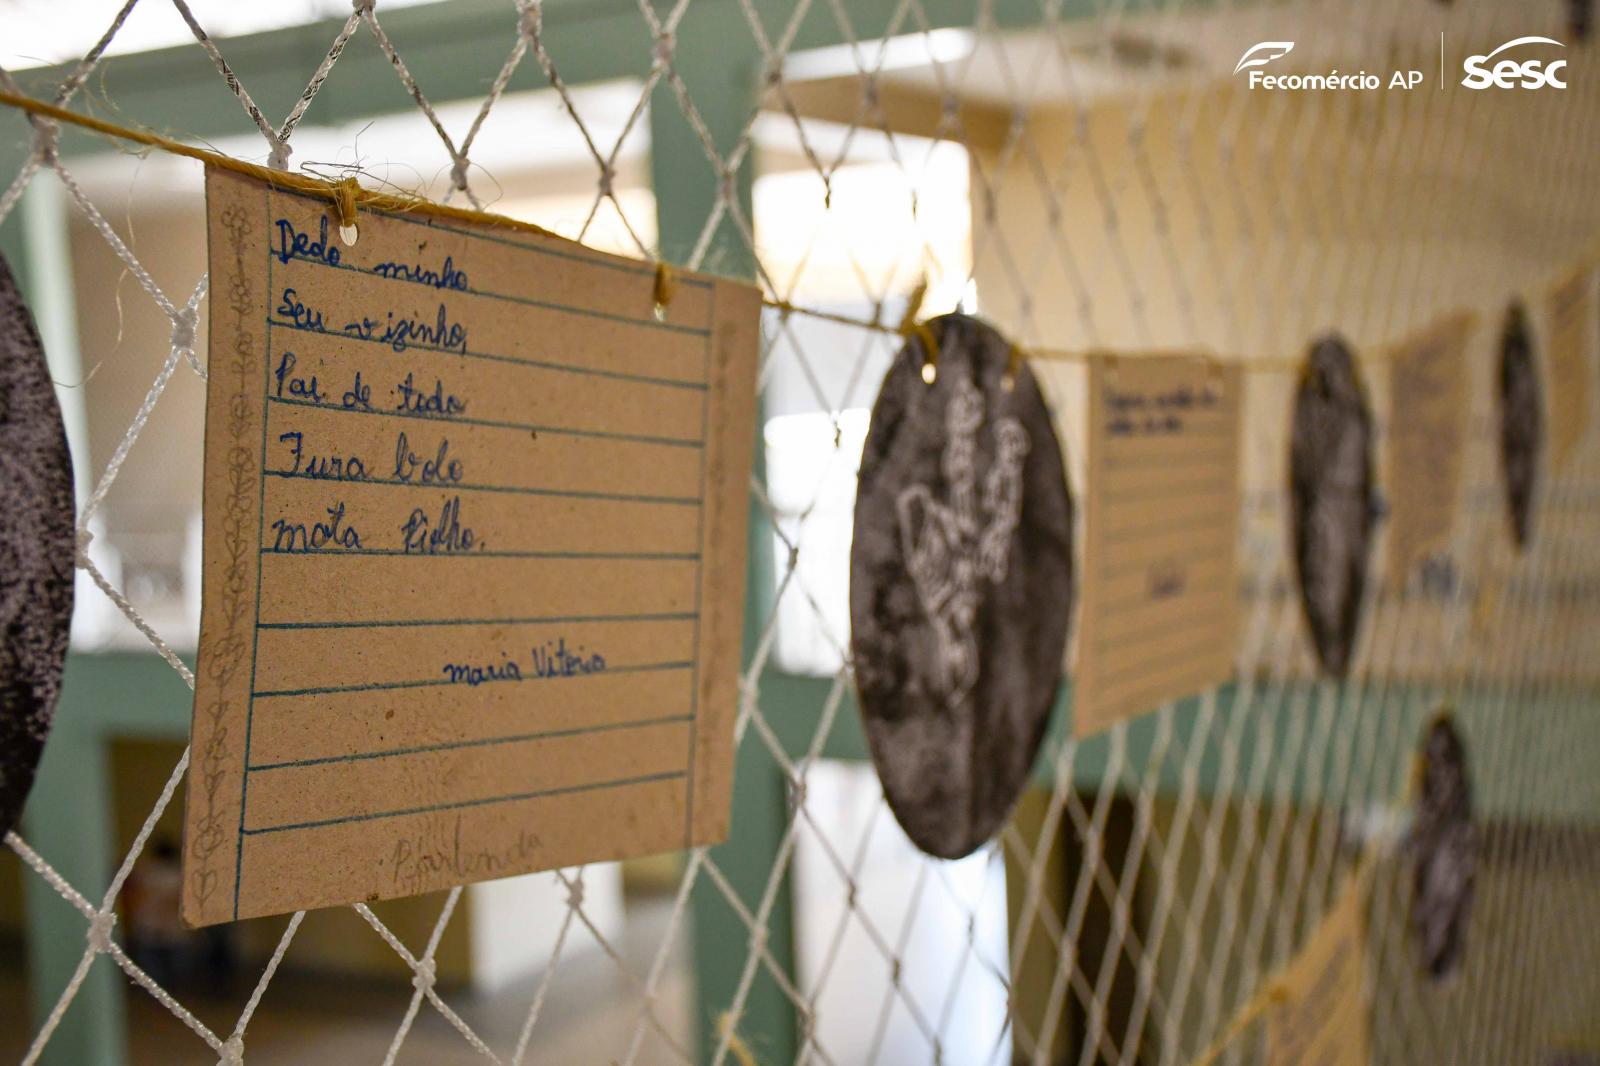 Fecomércio AP Sesc
Dedo minho
Seu vizinho,
Pai de todo
Fura bolo
mata Piolho.
maria Vitoria
Parlenda